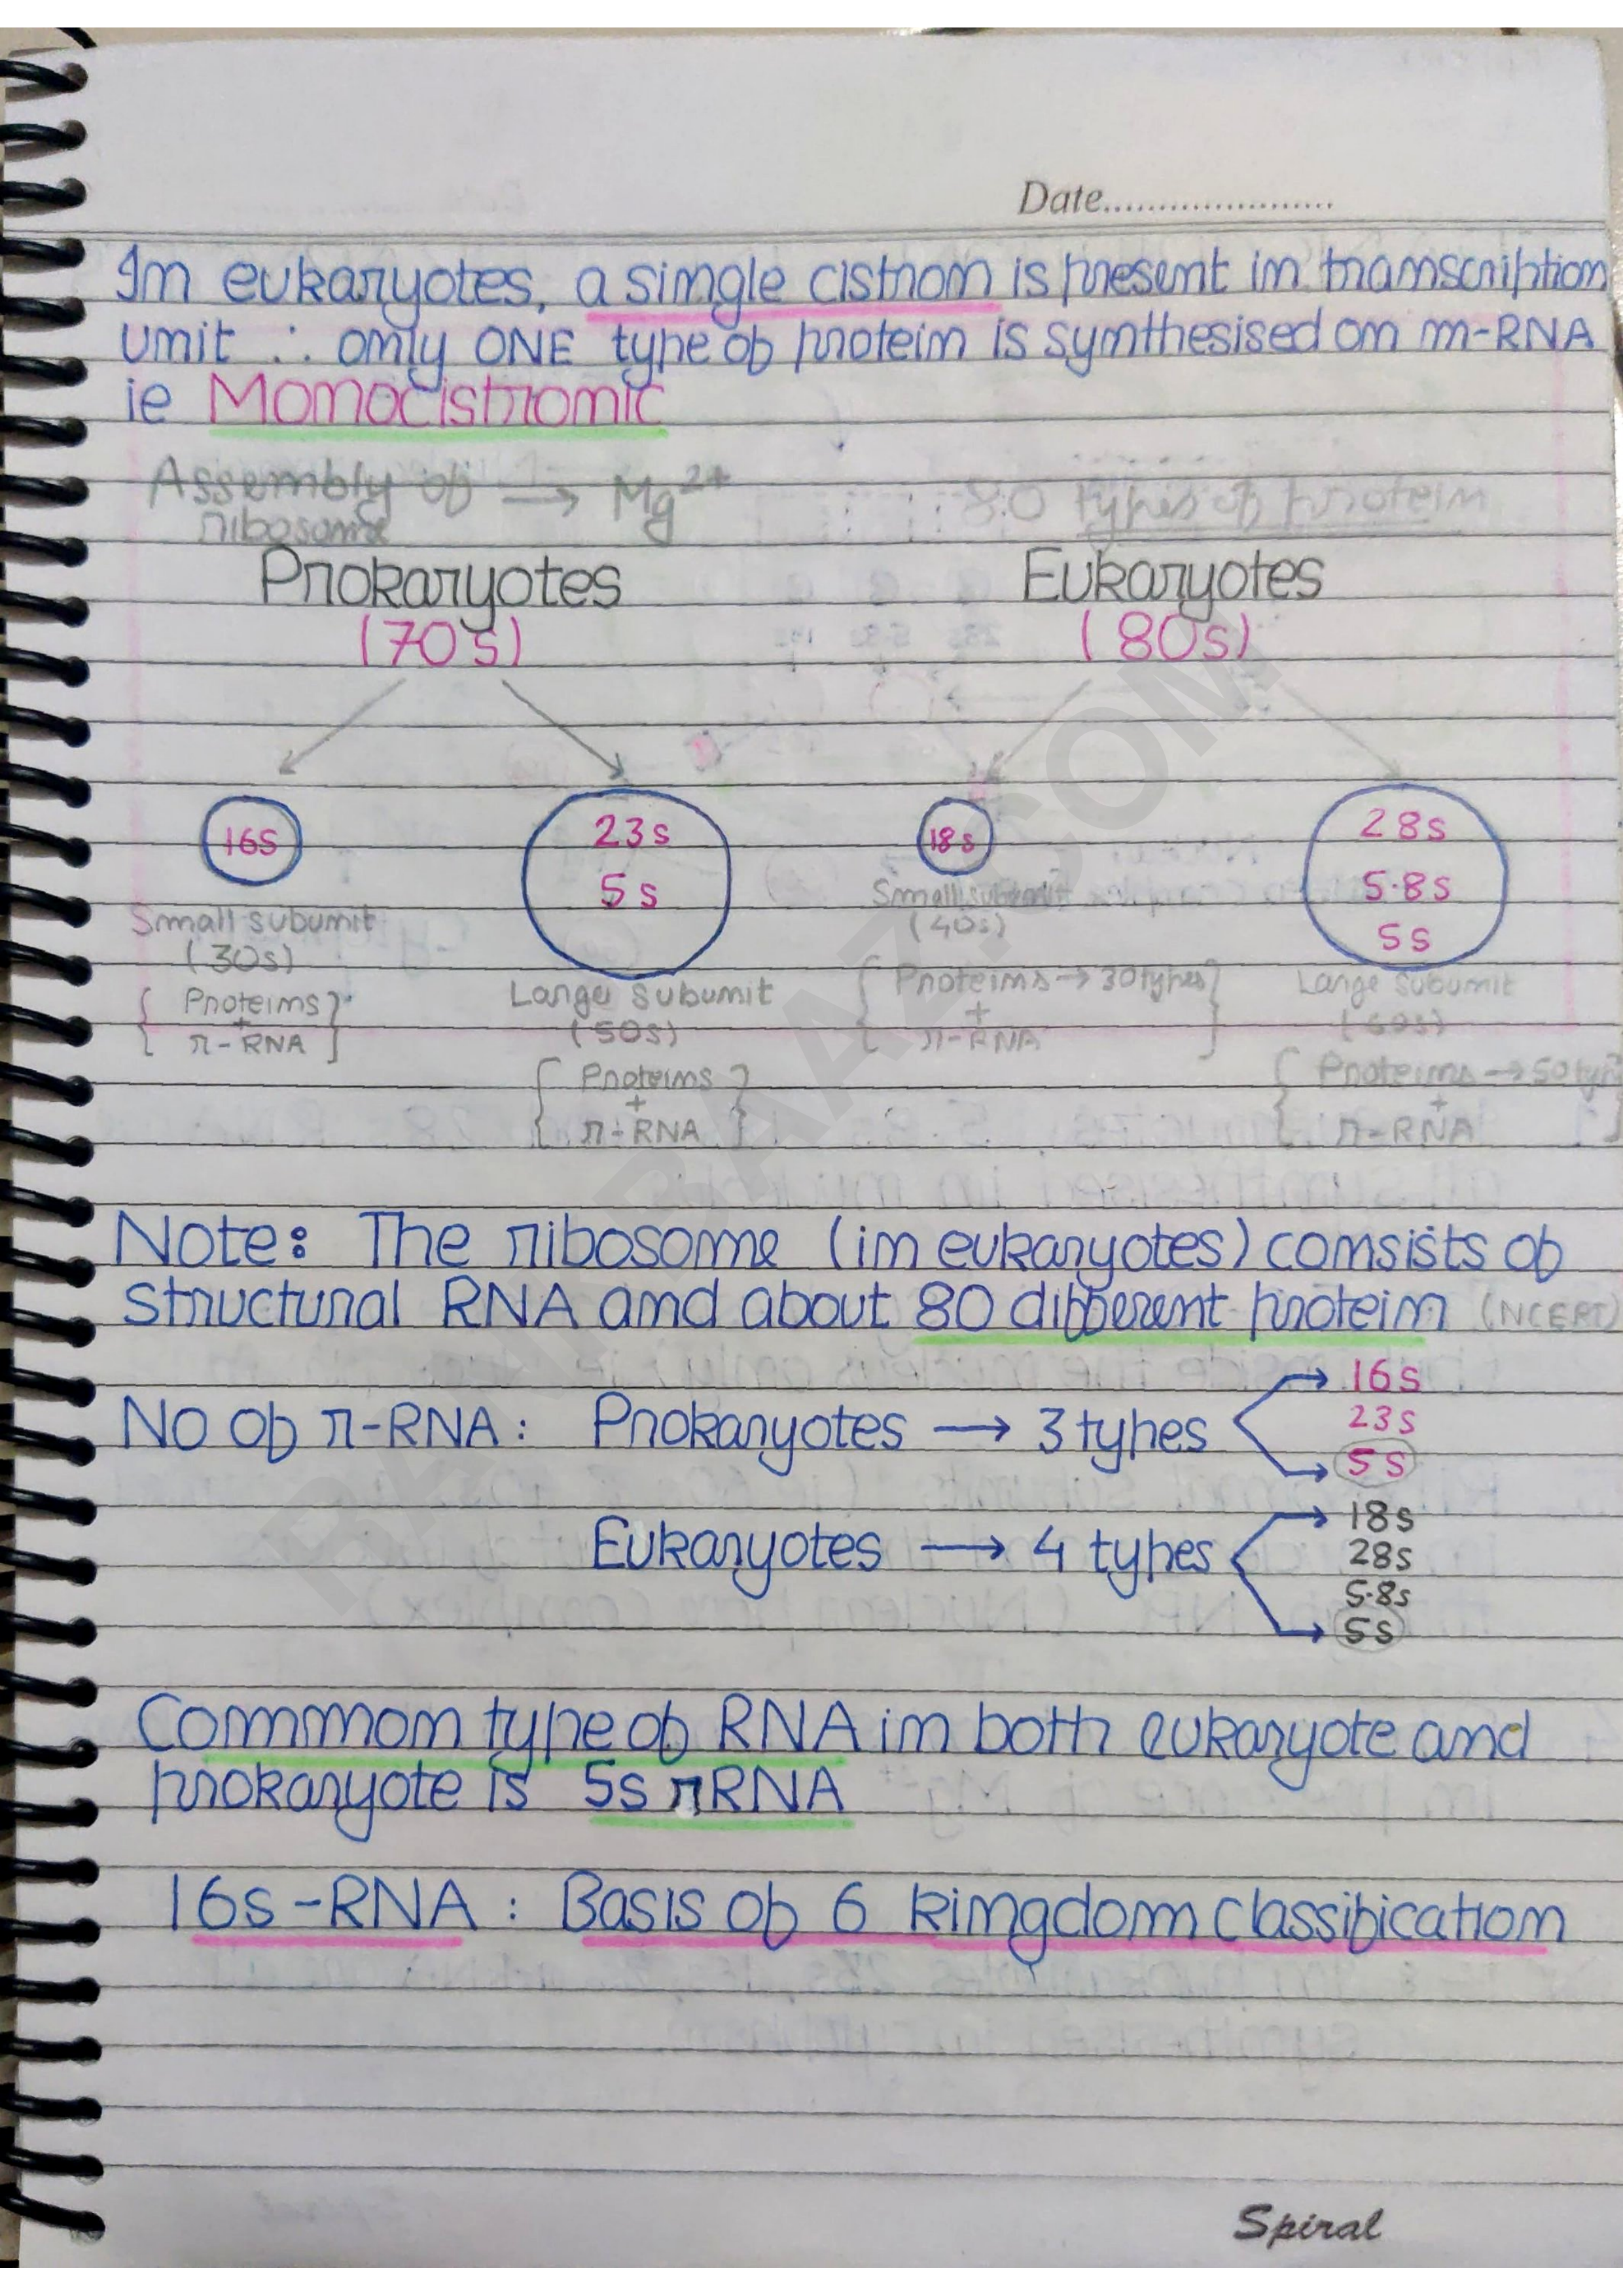 Date.....................
In eukaryotes, a single cistron is present in transcription
unit ∴ only ONE type of protein is synthesised on m-RNA
ie Monocistronic
Assembly of ribosome → Mg2+
80 types of protein
Prokaryotes
(70s)
Eukaryotes
(80s)
16s
Small subunit
(30s)
{ Proteins
+
r-RNA }
23s
5s
Large subunit
(50s)
{ Proteins
+
r-RNA }
18s
Small subunit
(40s)
{ Proteins → 30 types
+
r-RNA }
28s
5.8s
5s
Large subunit
(60s)
{ Proteins → 50 types
+
r-RNA }
Note: The ribosome (in eukaryotes) consists of
structural RNA and about 80 different protein (NCERT)
No of r-RNA : Prokaryotes → 3 types
16s
23s
5s
Eukaryotes → 4 types
18s
28s
5.8s
5s
Common type of RNA in both eukaryote and
prokaryote is 5s rRNA
16s-RNA : Basis of 6 kingdom classification
Spiral